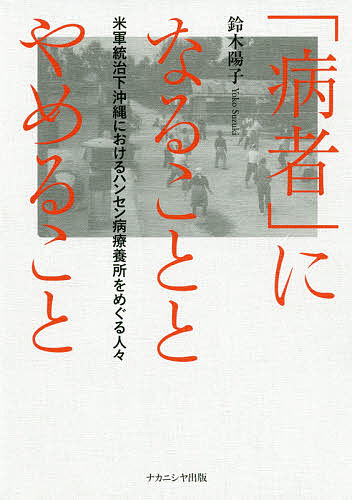 「病者」に
なることと
やめること
米軍統治下沖縄におけるハンセン病療養所をめぐる人々
鈴木陽子
Yoko Suzuki
ナカニシヤ出版